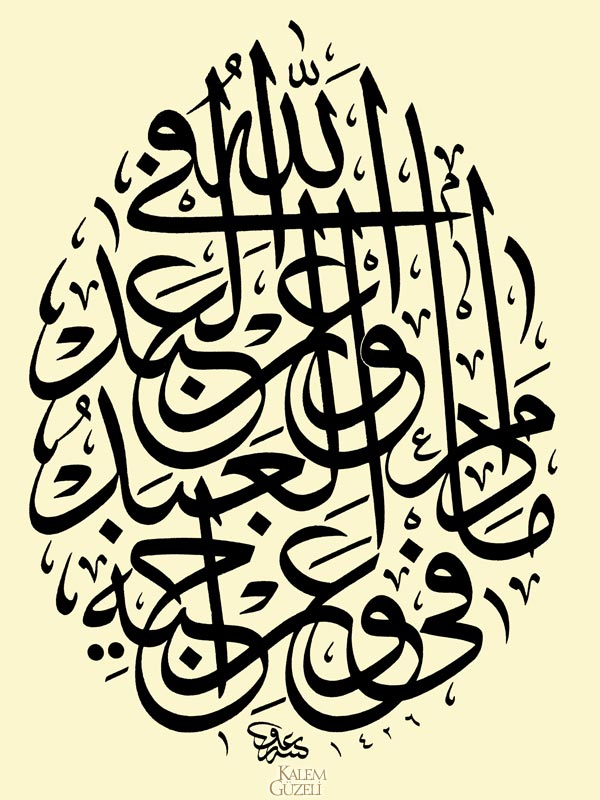 الله فى
عون العبد
مادام العبد
فى عون اخيه
١٤٢٦
KALEM
GÜZELİ